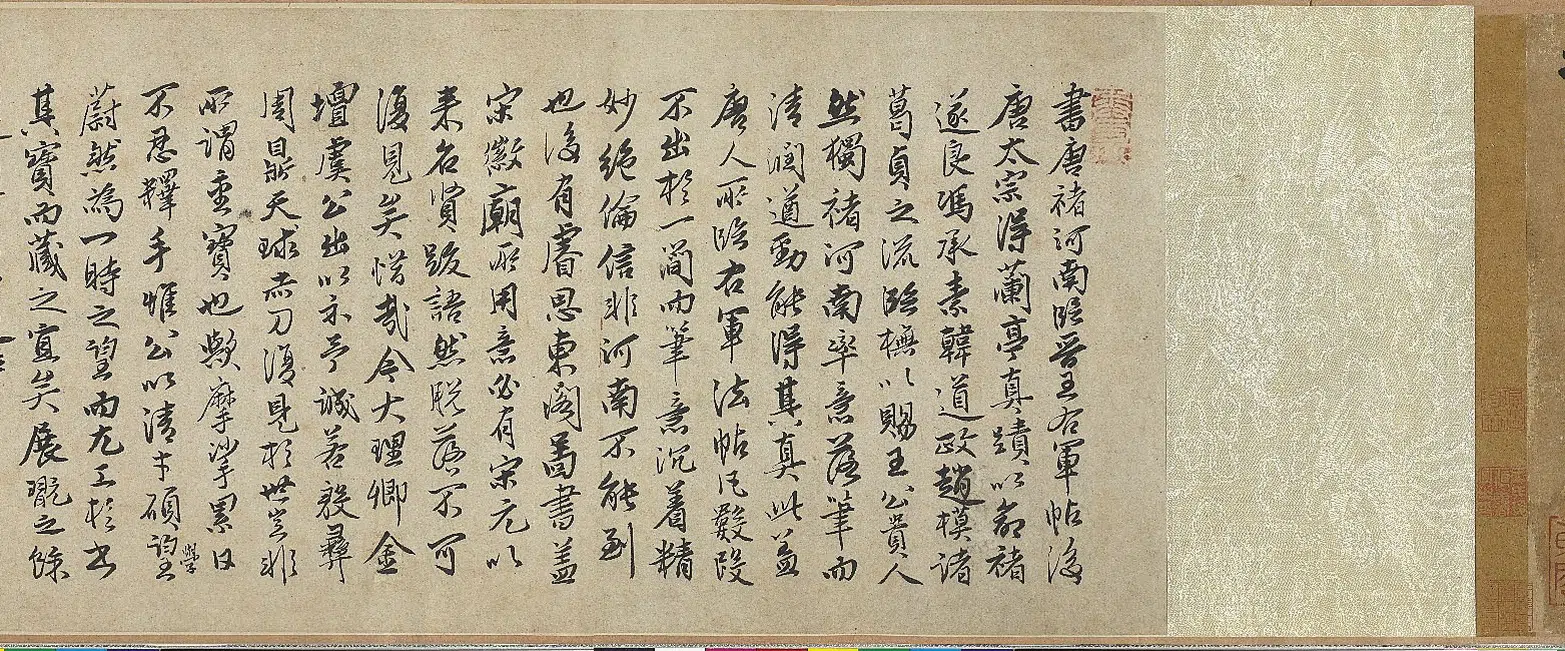 書唐褚河南臨晉王右軍帖後
唐太宗得蘭亭真蹟以命褚
遂良馮承素韓道政趙模諸
葛貞之流臨橅以賜王公貴人
然獨褚河南率意落筆而
清潤遒勁能得其真此蓋
唐人所臨右軍法帖凡數段
不出於一簡而筆意沉着精
妙絕倫信非河南不能到
也後有睿思東閣圖書蓋
宋徽廟所用意必有宋元以
來名賢跋語然脫落不可
復見矣惜哉今大理卿金
壇虞公出以示予誠若殷彝
周鼎天球赤刀復見於世豈非
所謂重寶也歟摩挲累日
不忍釋手惟公以清才碩學望
蔚然為一時之望而尤工於書
其寶而藏之宜矣展翫之餘